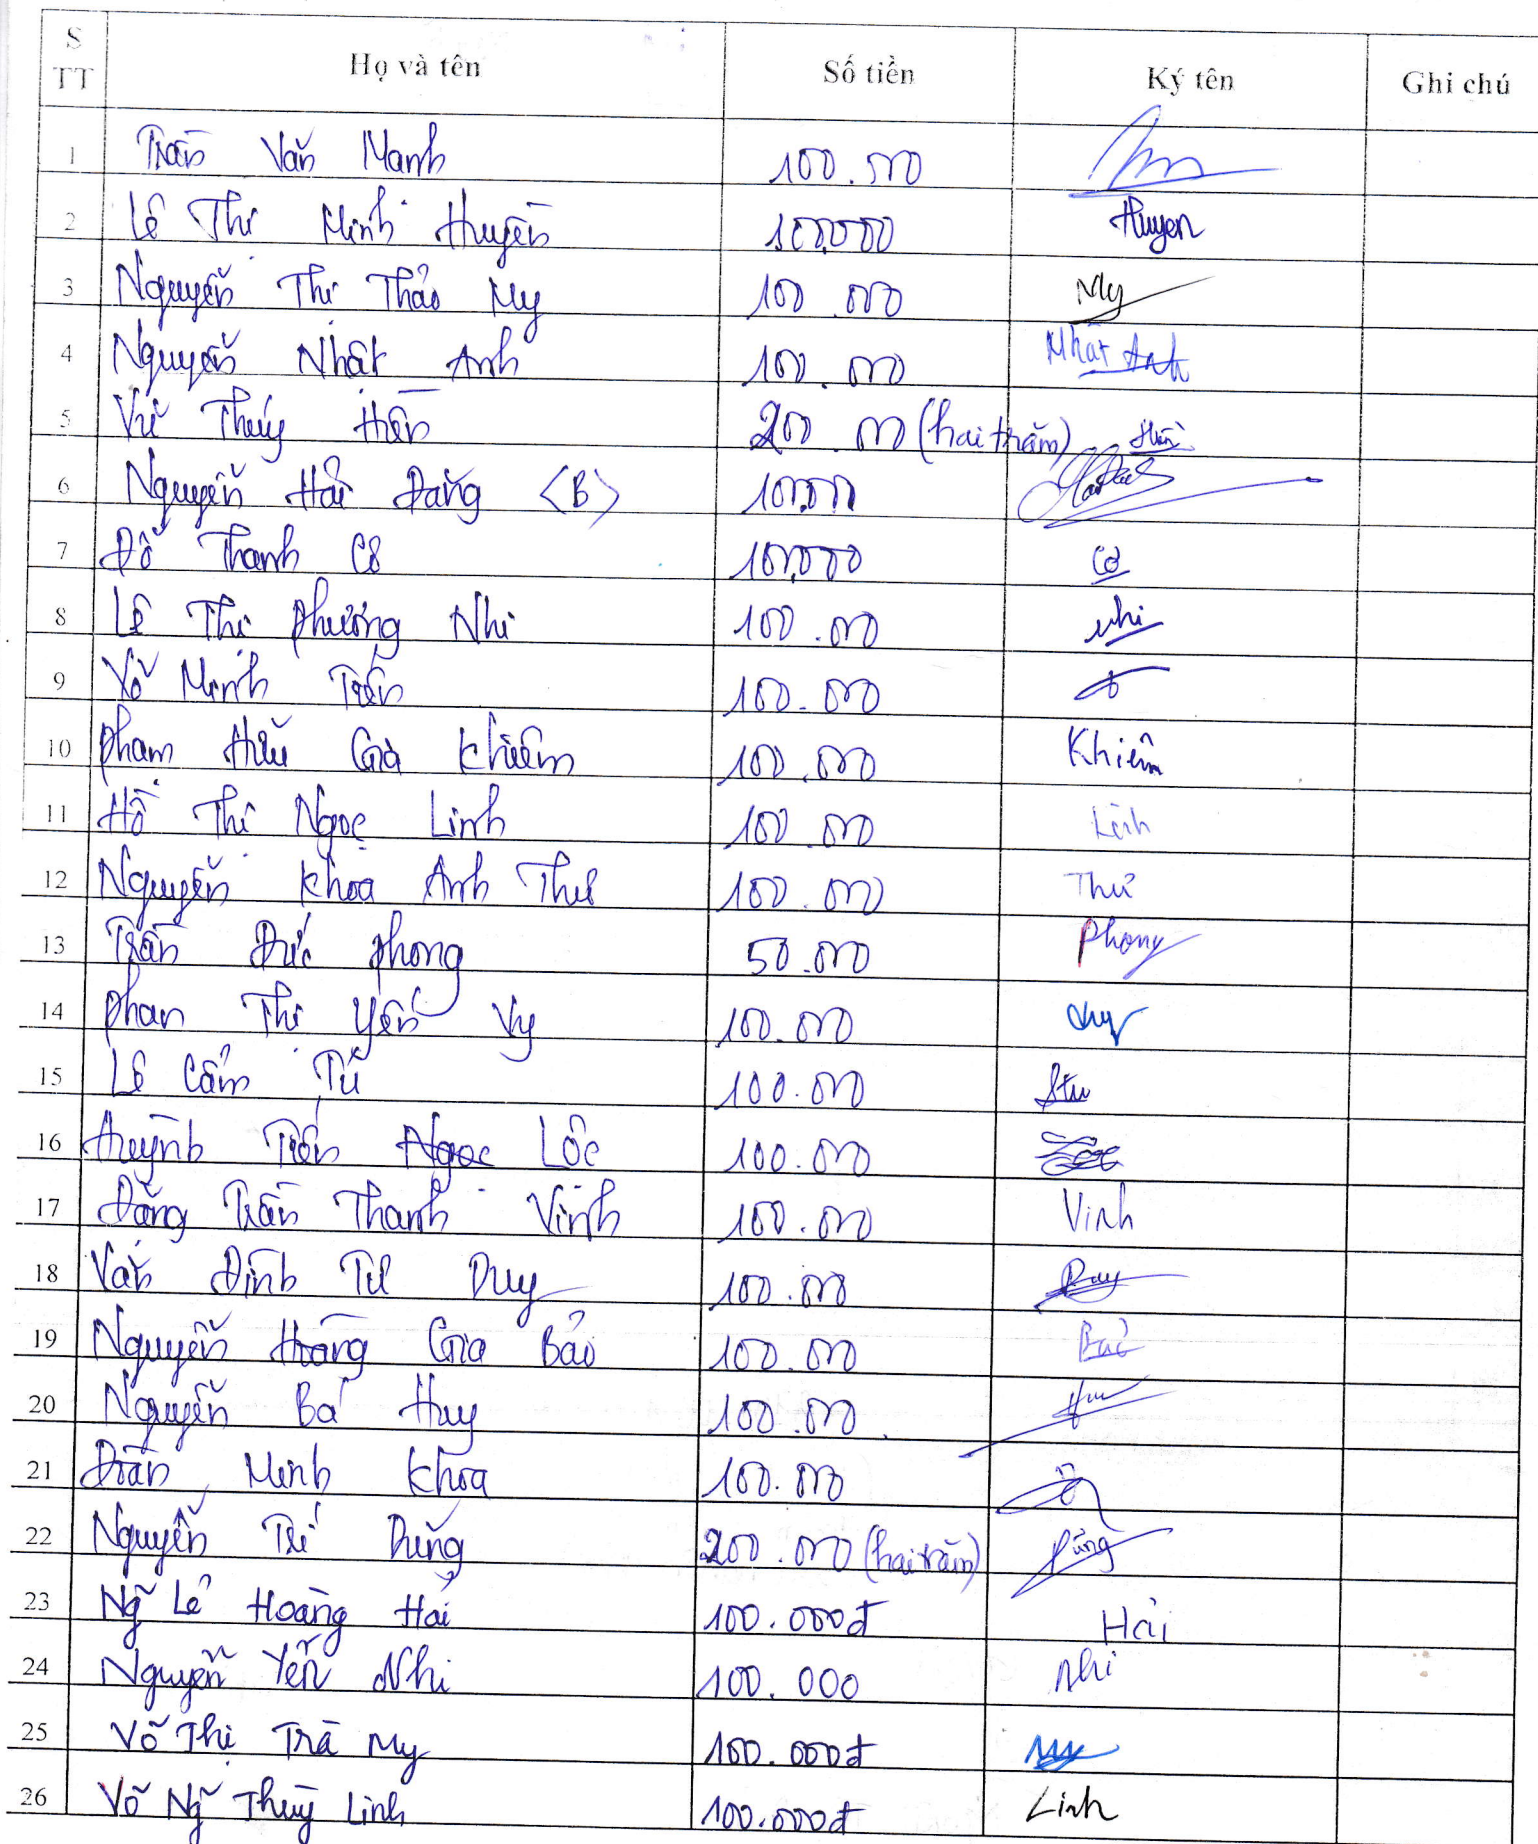 STT Họ và tên Số tiền Ký tên Ghi chú
1 Trần Văn Mạnh 100.000
2 Lê Thị Minh Huyền 100.000 Huyen
3 Nguyễn Thị Thảo My 100.000 My
4 Nguyễn Nhật Anh 100.000 Nhật Anh
5 Vũ Thúy Hiền 200.000 (hai trăm) Hiền
6 Nguyễn Hải Đăng <B> 100.000
7 Đỗ Thanh Cơ 100.000 Cơ
8 Lê Thị Phương Nhi 100.000 Nhi
9 Võ Minh Tiến 100.000
10 Phạm Hữu Gia Khiêm 100.000 Khiêm
11 Hồ Thị Ngọc Linh 100.000 Linh
12 Nguyễn Khoa Anh Thư 100.000 Thư
13 Trần Đức Phong 50.000 Phong
14 Phan Thị Yến Vy 100.000
15 Lê Cẩm Tú 100.000
16 Huỳnh Tiến Lộc 100.000
17 Đặng Trần Thanh Vinh 100.000 Vinh
18 Văn Đình Tư Duy 100.000 Duy
19 Nguyễn Hoàng Gia Bảo 100.000 Bảo
20 Nguyễn Bá Huy 100.000
21 Minh Khoa 100.000
22 Nguyễn Trí Dũng 200.000 (hai trăm) Dũng
23 Ng~ Lê Hoàng Hải 100.000đ Hải
24 Nguyễn Yến Nhi 100.000 Nhi
25 Võ Thị Trà My 100.000đ My
26 Võ Ng~ Thùy Linh 100.000đ Linh